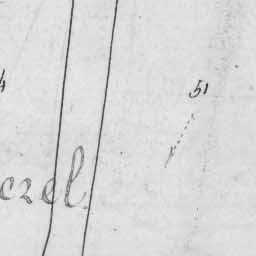 51
czel